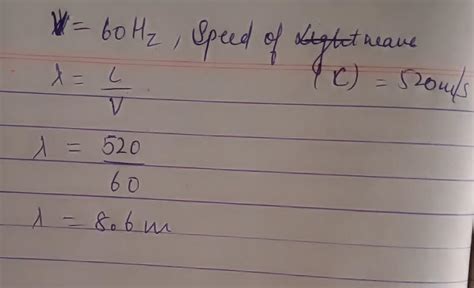 V = 60Hz, Speed of Light weave
λ = C/V (C) = 520m/s
λ = 520/60
λ = 8.6 m